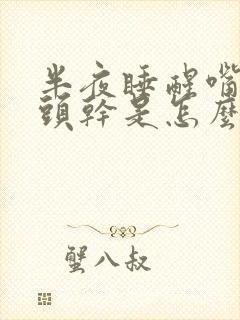 半夜睡醒嘴
頭幹是怎麼
蟹八叔